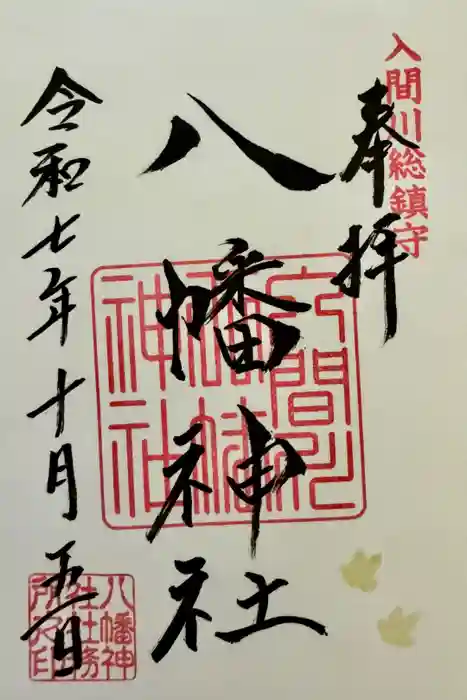 入間川総鎮守
奉拝
八幡神社
入間川
八幡
神社
令和七年十月五日
八幡神
社社務
所之印